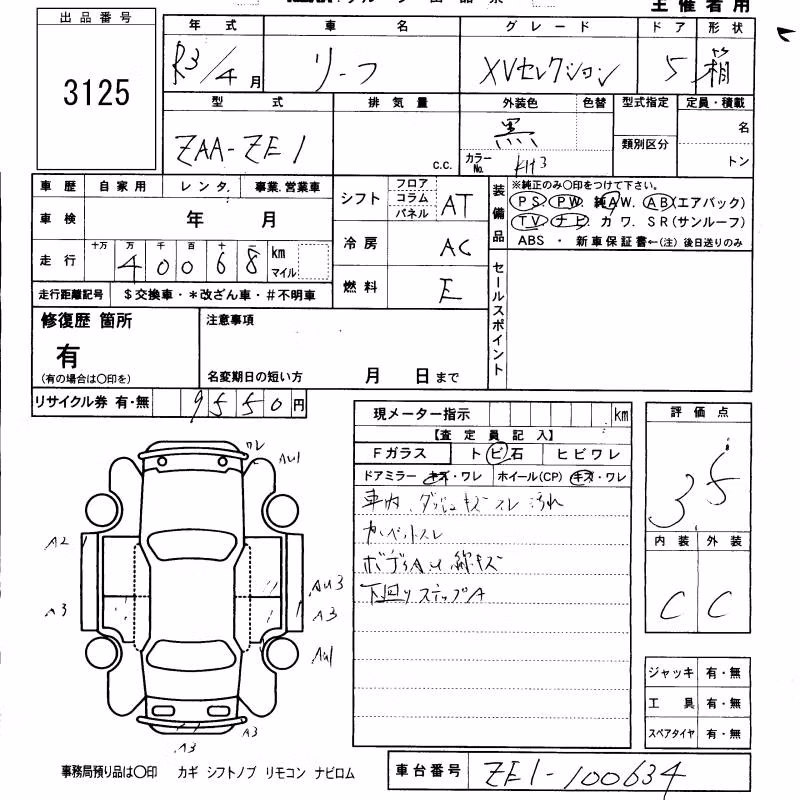 主催者用
出品番号
3125
年式 車名 グレード ドア 形状
R3/4月 リーフ XVセレクション 5 箱
型式 排気量 外装色 色替 型式指定 定員・積載
ZAA-ZE1 c.c. 黒 類別区分 名
カラーNo. KH3 トン
車歴 自家用 レンタ. 事業.営業車
車検 年 月
走行 十万 万 千 百 十 一
40068 km マイル
走行距離記号 $交換車・*改ざん車・#不明車
シフト フロア コラム パネル AT
冷房 AC
燃料 E
装備品
※純正のみ○印をつけて下さい。
PS PW 純AW. AB(エアバック)
TV ナビ. カワ. SR(サンルーフ)
ABS ・ 新車保証書←(注) 後日送りのみ
セールスポイント
修復歴 箇所
有
(有の場合は○印を)
注意事項
名変期日の短い方 月 日まで
リサイクル券 有・無 9550円
現メーター指示 km
【査定員記入】
Fガラス トビ石 ヒビワレ
ドアミラー キズ・ワレ ホイール(CP) キズ・ワレ
車内、ダッシュキズ スレ 汚れ
カーペットスレ
ボディAU 線キズ
下回り ステップA
評価点
3.5
内装 外装
C C
ワレ
AU1
A2
A3
AU3
A3
AU1
A3
A3
ジャッキ 有・無
工具 有・無
スペアタイヤ 有・無
事務局預り品は○印 カギ シフトノブ リモコン ナビロム
車台番号 ZE1-100634